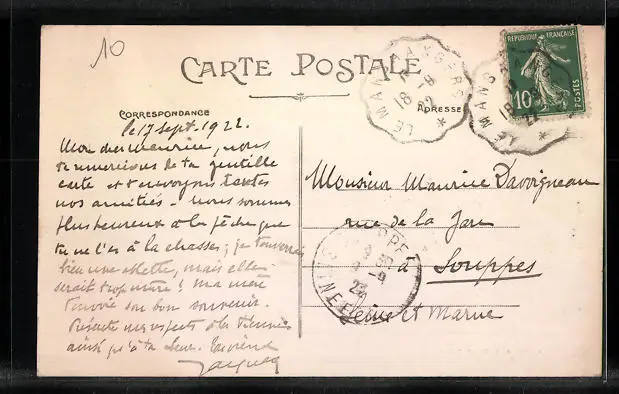 10
CARTE POSTALE
REPUBLIQUE FRANÇAISE
10c
POSTES
LE MANS A ANGERS
18 -9
22
LE MANS
18 -9
22
CORRESPONDANCE
ADRESSE
le 17 Sept. 1922.
Mon cher Maurice, nous
te remercions de ta gentille
carte et t'envoyons toutes
nos amitiés - nous sommes
plus heureux à la pêche que
tu ne l'es à la chasse; je t'enverrais
bien une ablette, mais elle
serait trop mûre! Ma mère
t'envoie son bon souvenir.
Présente mes respects à la tienne
ainsi qu'à ta
Jacques
Monsieur Maurice Davoigneau
rue de la Gare
à Souppes
Seine et Marne
SOUPPES
-9
22
SEINE ET